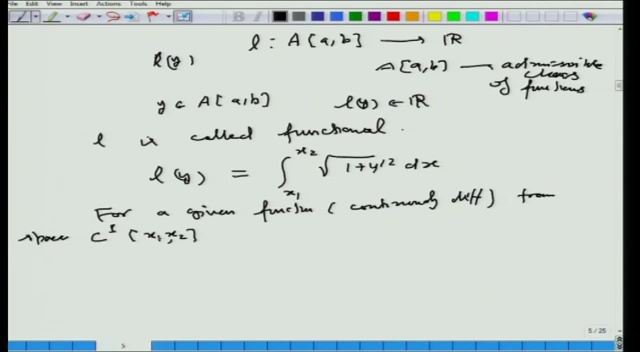 File Edit View Insert Actions Tools Help
l : A[a,b] ⟶ ℝ
l(y)
A[a,b] — admissible
class
of functions
y ∈ A[a,b] l(y) ∈ ℝ
l is called functional.
l(y) = ∫_{x₁}^{x₂} √(1+y'²) dx
For a given function (continuously diff) from
space C¹[x₁,x₂]
5
5 / 25